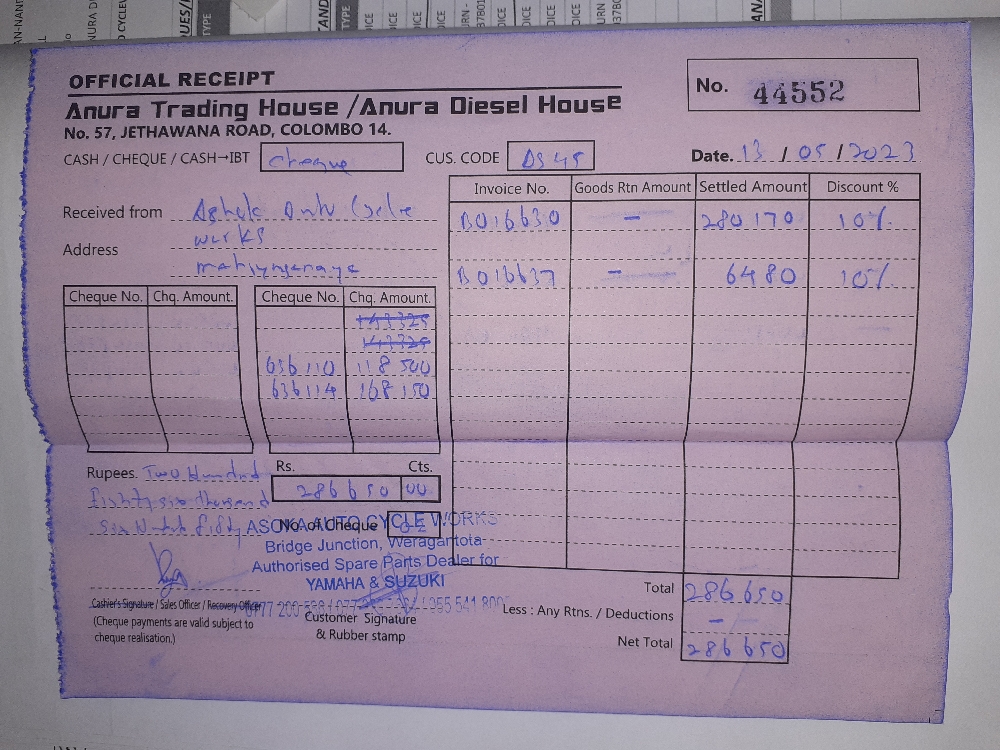 OFFICIAL RECEIPT
Anura Trading House / Anura Diesel House
No. 57, JETHAWANA ROAD, COLOMBO 14.
No. 44552
CASH / CHEQUE / CASH→IBT cheque
CUS. CODE DS 45
Date. 13 / 05 / 2023
Received from Ashok Auto Cycle
Address works
Invoice No. Goods Rtn Amount Settled Amount Discount %
B016630 - 280 170 10%
B016637 - 6480 10%
Cheque No. Chq. Amount. Cheque No. Chq. Amount.
143325
143325
636110 118 500
636114 168 150
Rupees. Two Hundred
Rs. Cts.
286 650 00
six thousand
fifty
No. of Cheque 02
ASOKA AUTO CYCLE WORKS
Bridge Junction, Weragantota
Authorised Spare Parts Dealer for
YAMAHA & SUZUKI
Cashier's Signature / Sales Officer / Recovery Officer
(Cheque payments are valid subject to
cheque realisation.)
Customer Signature
& Rubber stamp
Total 286 650
Less : Any Rtns. / Deductions -
Net Total 286 650